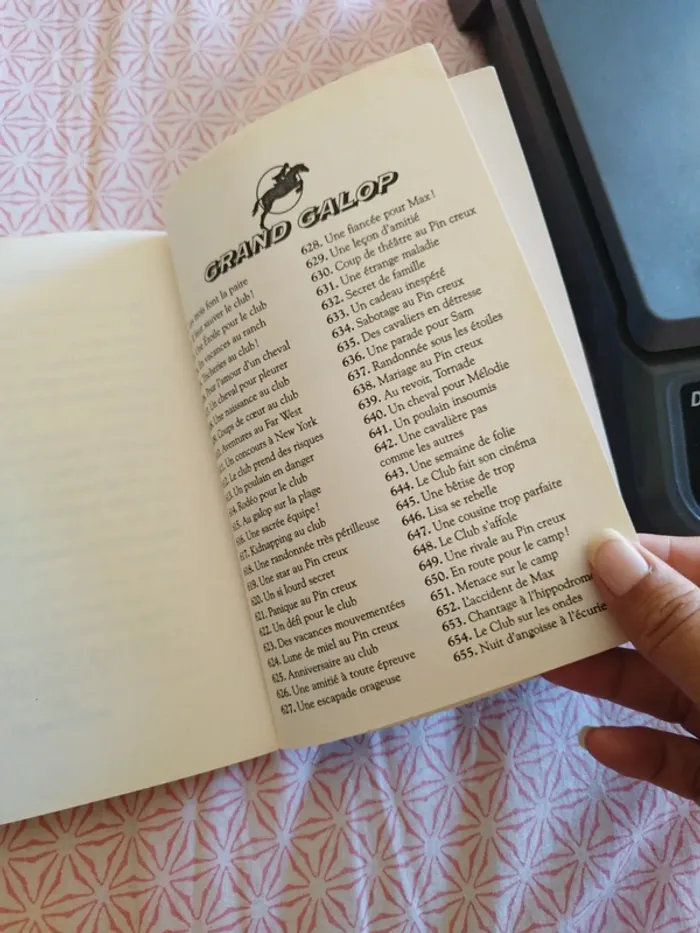 GRAND GALOP
font la paire
sauver le club !
Étoile pour le club
vacances au ranch
au club !
Pour l'amour d'un cheval
Un cheval pour pleurer
Une naissance au club
Coups de cœur au club
Aventures au Far West
Un concours à New York
Le club prend des risques
Un poulain en danger
614. Rodéo pour le club
615. Au galop sur la plage
616. Une sacrée équipe !
617. Kidnapping au club
618. Une randonnée très périlleuse
619. Une star au Pin creux
620. Un si lourd secret
621. Panique au Pin creux
622. Un défi pour le club
623. Des vacances mouvementées
624. Lune de miel au Pin creux
625. Anniversaire au club
626. Une amitié à toute épreuve
627. Une escapade orageuse
628. Une fiancée pour Max !
629. Une leçon d'amitié
630. Coup de théâtre au Pin creux
631. Une étrange maladie
632. Secret de famille
633. Un cadeau inespéré
634. Sabotage au Pin creux
635. Des cavaliers en détresse
636. Une parade pour Sam
637. Randonnée sous les étoiles
638. Mariage au Pin creux
639. Au revoir, Tornade
640. Un cheval pour Mélodie
641. Un poulain insoumis
642. Une cavalière pas
comme les autres
643. Une semaine de folie
644. Le Club fait son cinéma
645. Une bêtise de trop
646. Lisa se rebelle
647. Une cousine trop parfaite
648. Le Club s'affole
649. Une rivale au Pin creux
650. En route pour le camp !
651. Menace sur le camp
652. L'accident de Max
653. Chantage à l'hippodrome
654. Le Club sur les ondes
655. Nuit d'angoisse à l'écurie